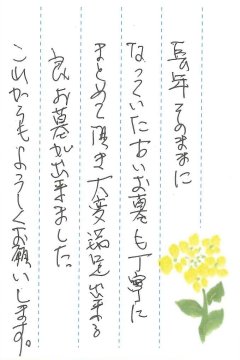 長年そのままに
なっていた古いお墓も丁寧に
まとめて頂き大変満足出来る
良いお墓が出来ました。
これからもよろしくお願いします。